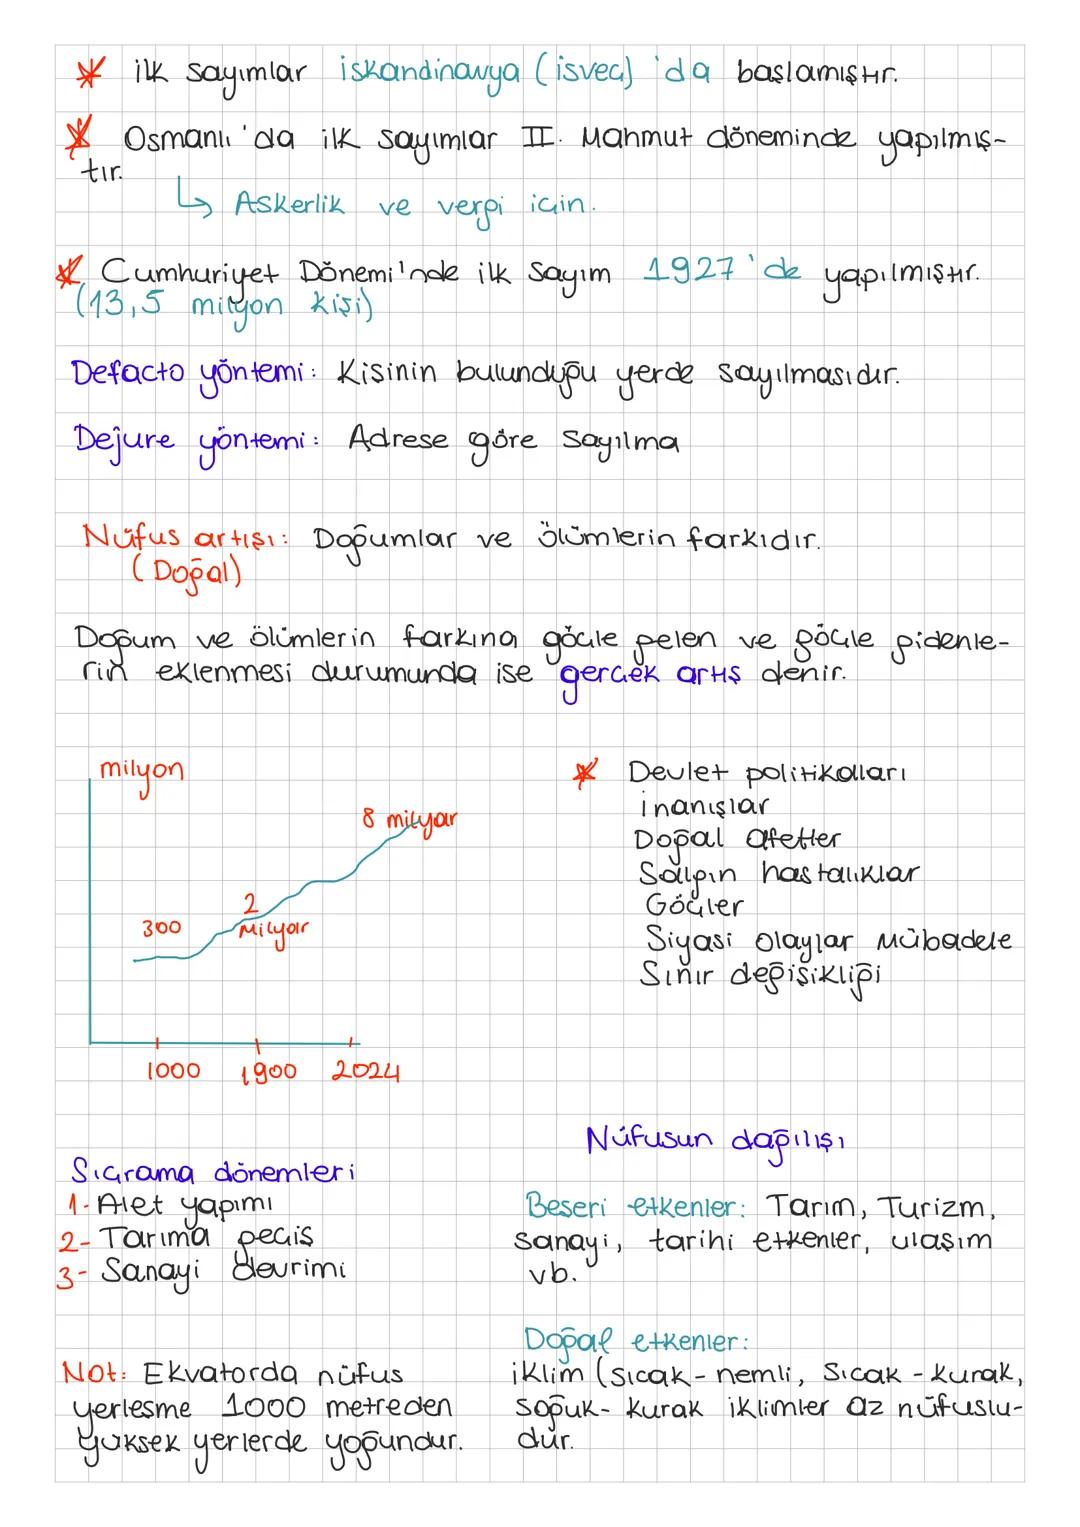 * ilk sayımlar iskandinavya (isveç) 'da başlamıştır.
* Osmanlı 'da ilk sayımlar II. Mahmut döneminde yapılmış-
tır.
↳ Askerlik ve vergi için.
* Cumhuriyet Dönemi'nde ilk sayım 1927'de yapılmıştır.
(13,5 milyon kişi)
Defacto yöntemi: Kişinin bulunduğu yerde sayılmasıdır.
Dejure yöntemi: Adrese göre sayılma
Nüfus artışı: Doğumlar ve ölümlerin farkıdır.
(Doğal)
Doğum ve ölümlerin farkına göçle gelen ve göçle gidenle-
rin eklenmesi durumunda ise gerçek artış denir.
milyon
8 milyar
2
milyar
300
1000 1900 2024
* Devlet politikaları
inanışlar
Doğal afetler
Salgın hastalıklar
Göçler
Siyasi olaylar mübadele
Sınır değişikliği
Sıçrama dönemleri
1- Alet yapımı
2- Tarıma geçiş
3- Sanayi devrimi
Not: Ekvatorda nüfus
yerleşme 1000 metreden
yüksek yerlerde yoğundur.
Nüfusun dağılışı
Beşeri etkenler: Tarım, Turizm,
sanayi, tarihi etkenler, ulaşım
vb.
Doğal etkenler:
iklim (sıcak-nemli, sıcak-kurak,
soğuk-kurak iklimler az nüfuslu-
dur.